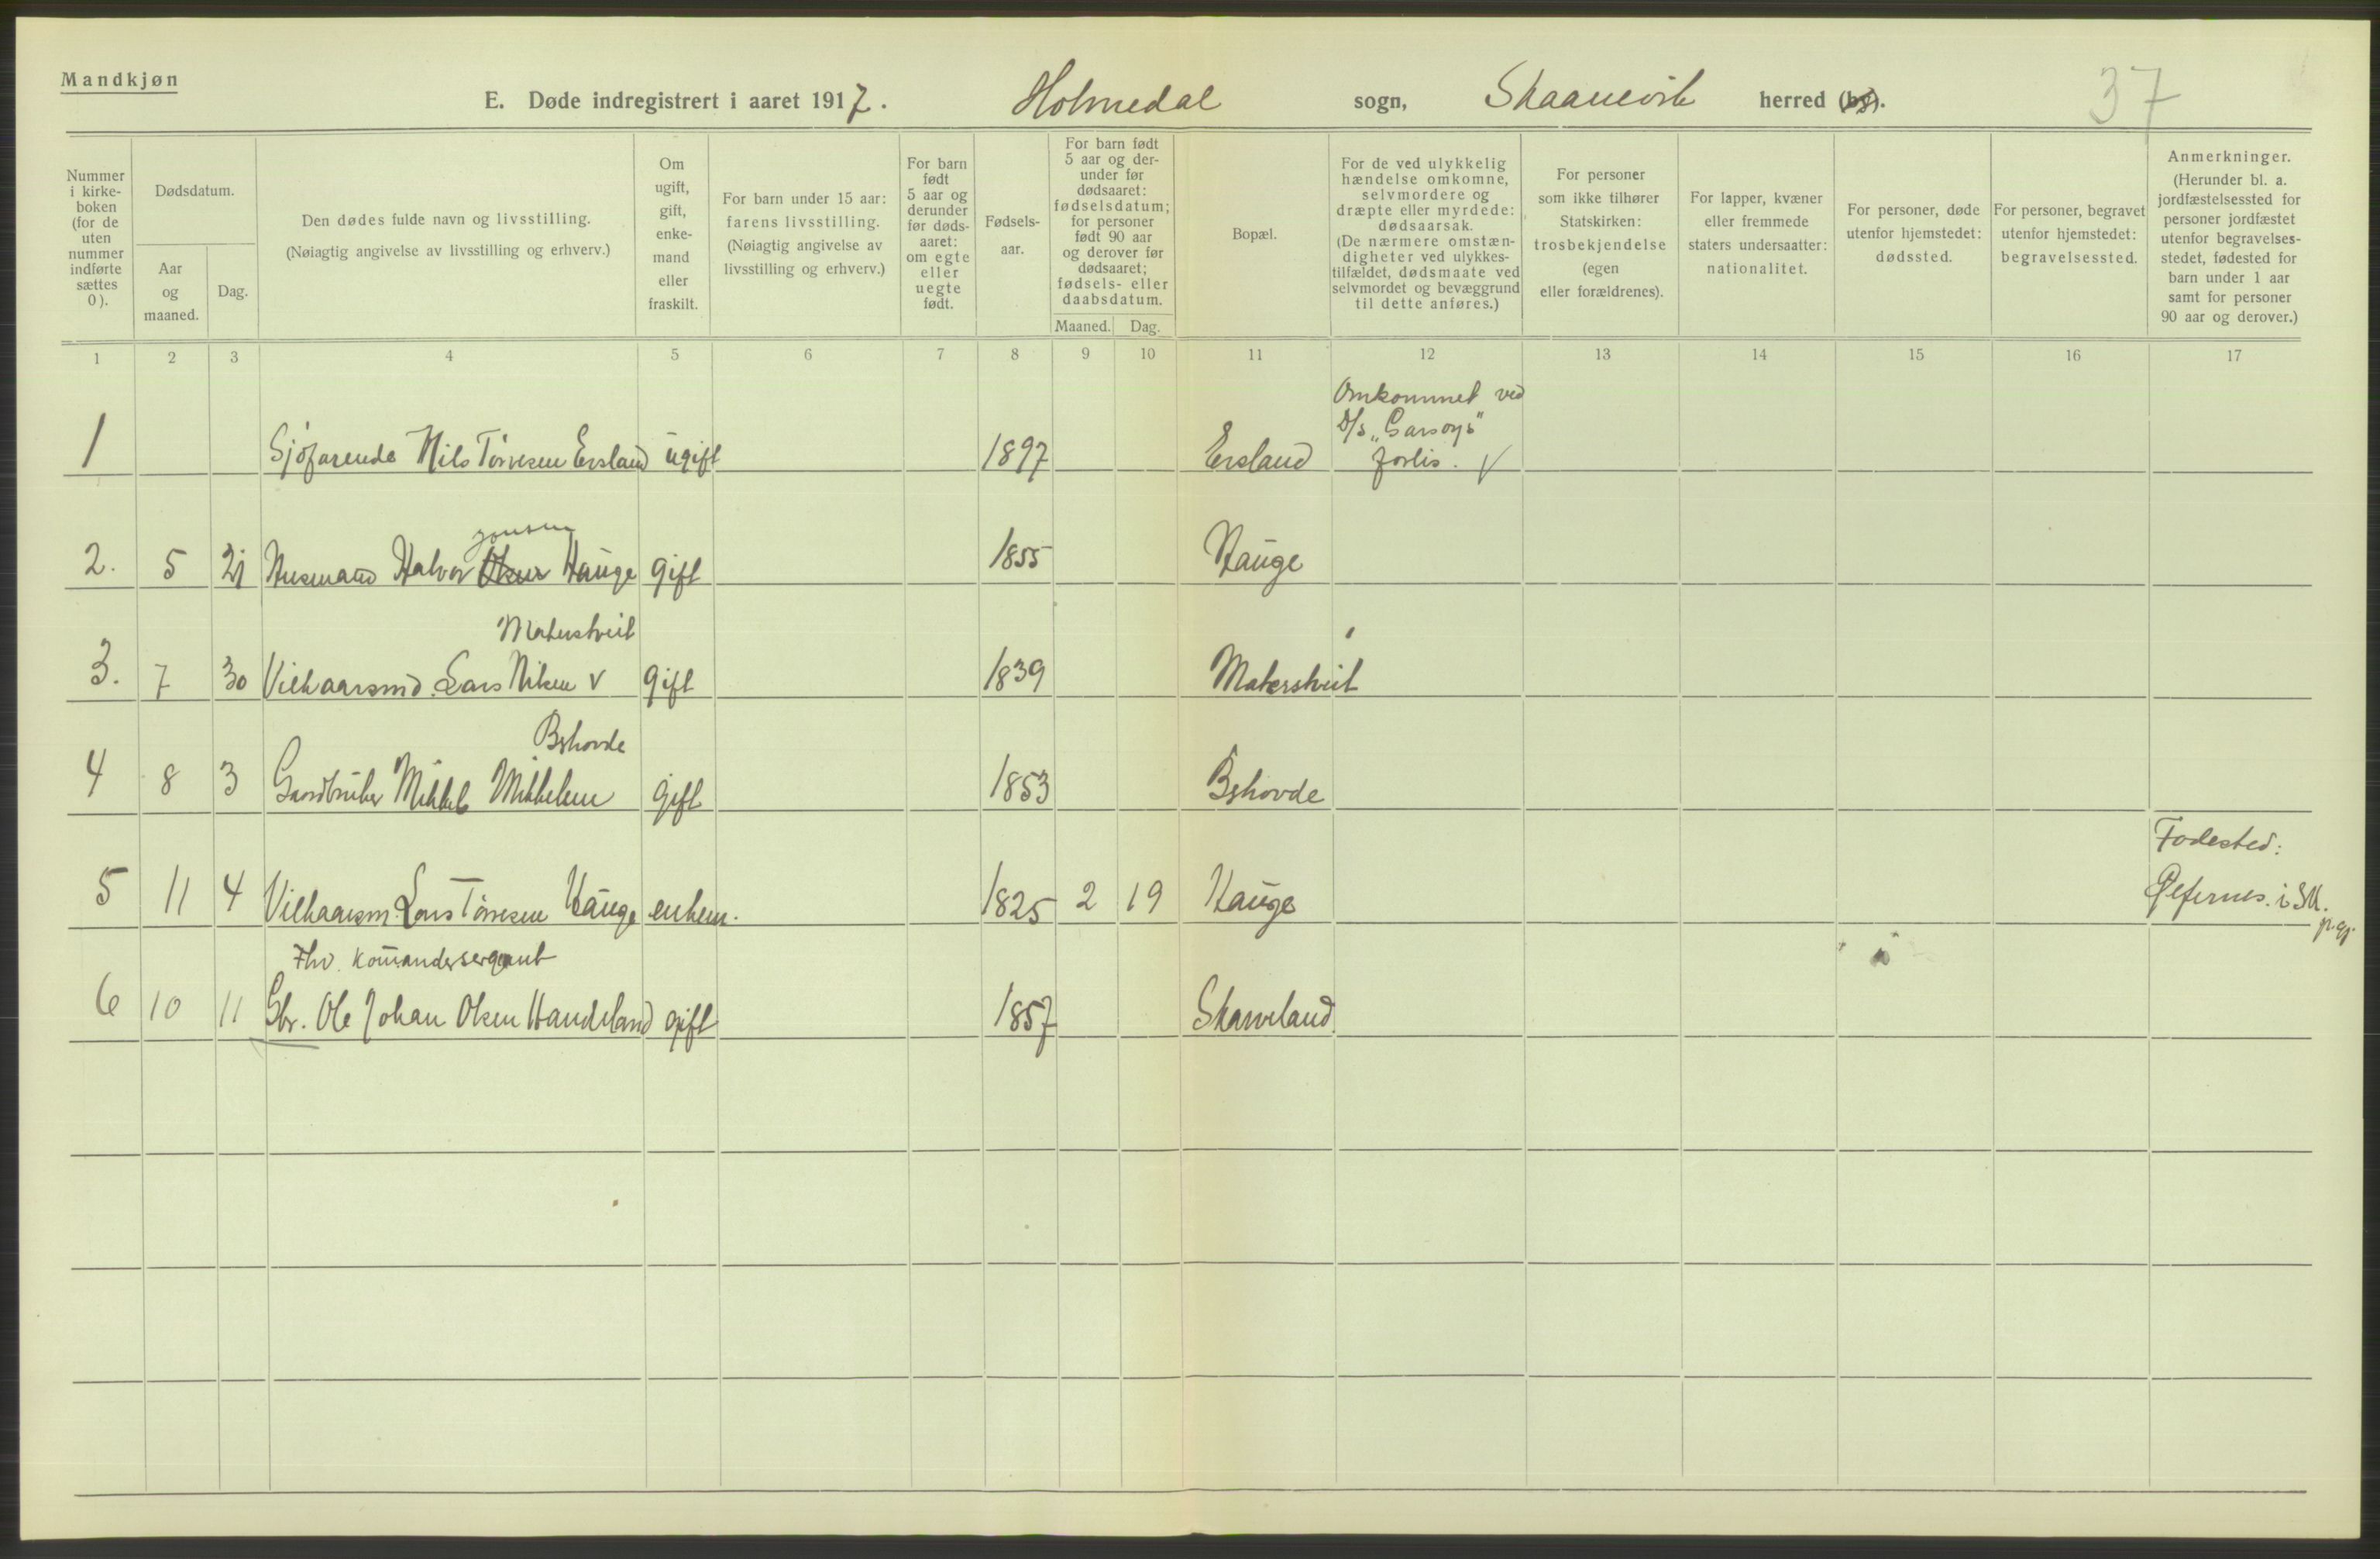 Mandkjøn
E. Døde indregistrert i aaret 1917. Holmedal sogn, Skaanevik herred (by).
37
Nummer
i kirke-
boken
(for de
uten
nummer
indførte
sættes
0).
Dødsdatum.
Aar
og
maaned.
Dag.
Den dødes fulde navn og livsstilling.
(Nøiagtig angivelse av livsstilling og erhverv.)
Om
ugift,
gift,
enke-
mand
eller
fraskilt.
For barn under 15 aar:
farens livsstilling.
(Nøiagtig angivelse av
livsstilling og erhverv.)
For barn
født
5 aar og
derunder
før døds-
aaret:
om egte
eller
uegte
født.
Fødsels-
aar.
For barn født
5 aar og der-
under før
dødsaaret:
fødselsdatum;
for personer
født 90 aar
og derover før
dødsaaret;
fødsels- eller
daabsdatum.
Maaned. Dag.
Bopæl.
For de ved ulykkelig
hændelse omkomne,
selvmordere og
dræpte eller myrdede:
dødsaarsak.
(De nærmere omstæn-
digheter ved ulykkes-
tilfældet, dødsmaate ved
selvmordet og bevæggrund
til dette anføres.)
For personer
som ikke tilhører
Statskirken:
trosbekjendelse
(egen
eller forældrenes).
For lapper, kvæner
eller fremmede
staters undersaatter:
nationalitet.
For personer, døde
utenfor hjemstedet:
dødssted.
For personer, begravet
utenfor hjemstedet:
begravelsessted.
Anmerkninger.
(Herunder bl. a.
jordfæstelsessted for
personer jordfæstet
utenfor begravelses-
stedet, fødested for
barn under 1 aar
samt for personer
90 aar og derover.)
1 2 3 4 5 6 7 8 9 10 11 12 13 14 15 16 17
Omkommet ved
D/s „Garsoy's"
1 Sjöfarende Nils Torvesen Ersland ugift 1897 Ersland forlis. V
Jonsen
2. 5 21 Husmand Halvor Olsen Hauge gift 1855 Hauge
Matersteit
3. 7 30 Vilkaarsmd. Lars Nilsen V gift 1839 Matersteit
Bshovde
4 8 3 Gaardbruker Mikkel Mikkelsen gift 1853 Bshovde
Fødested:
5 11 4 Vilkaarsm. Lars Torresen Hauge enkem. 1825 2 19 Hauge Ølfernes. i Sk.
p.gj.
Fhv. Komandersergeant
6 10 11 Gbr. Ole Johan Olsen Handeland gift 1857 Skarveland